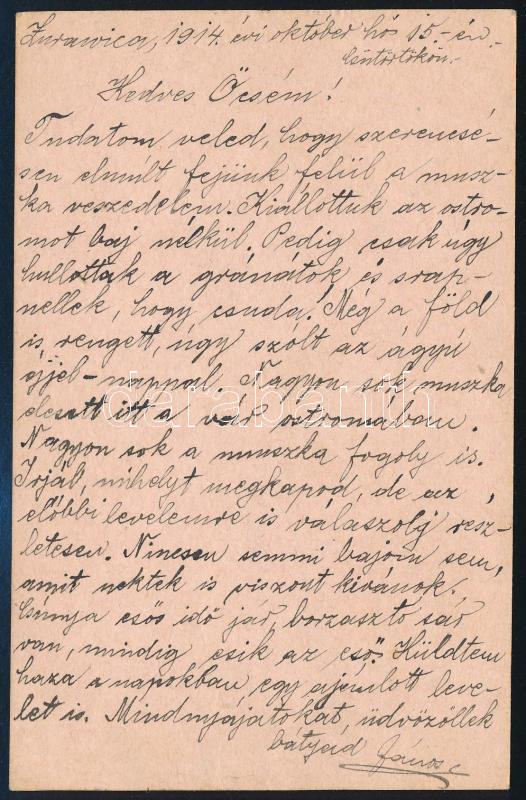 Zurawica, 1914. évi október hós 15.-én.-
Csütörtökön.-
Kedves Öcsém!
Tudatom veled, hogy szerencsé-
sen elmúlt fejünk felül a musz-
ka veszedelem. Kiállottuk az ostro-
mot baj nélkül. Pedig csak úgy
hullottak a gránátok és srap-
nellek, hogy csuda! Még a föld
is rengett, úgy szólt az ágyú
éjjel-nappal. Nagyon sok muszka
elesett itt a vár ostromában.
Nagyon sok a muszka fogoly is.
Irjál, mihelyt megkapod, de az
előbbi levelemre is válaszolj resz-
letesen. Nincsen semmi bajom sem,
amit nektek is viszont kivánok.
Csunya esős idő jár, borzasztó sár
van, mindig esik az eső. Küldtem
haza a napokban egy ajánlott leve-
let is. Mindnyájátokat, üdvözöllek
bátyád János
darabanth.com